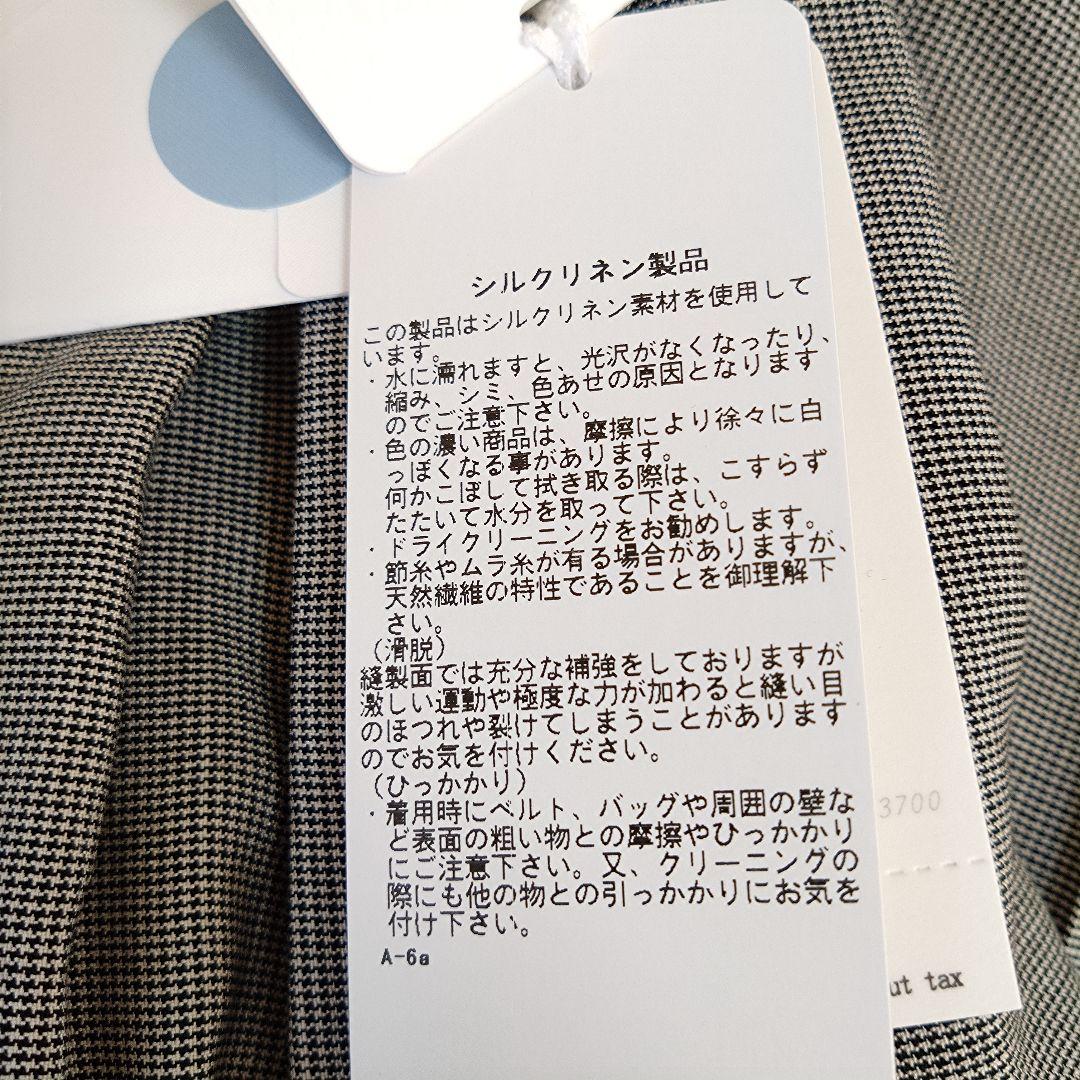 シルクリネン製品
この製品はシルクリネン素材を使用して
います。
・水に濡れますと、光沢がなくなったり、
縮み、シミ、色あせの原因となります
のでご注意下さい。
・色の濃い商品は、摩擦により徐々に白
っぽくなる事があります。
何かこぼして拭き取る際は、こすらず
たたいて水分を取って下さい。
・ドライクリーニングをお勧めします。
・節糸やムラ糸が有る場合がありますが、
天然繊維の特性であることを御理解下
さい。
(滑脱)
縫製面では充分な補強をしておりますが
激しい運動や極度な力が加わると縫い目
のほつれや裂けてしまうことがあります
のでお気を付けください。
(ひっかかり)
・着用時にベルト、バッグや周囲の壁な
ど表面の粗い物との摩擦やひっかかり
にご注意下さい。又、クリーニングの
際にも他の物との引っかかりにお気を
付け下さい。
A-6a
3700
ut tax